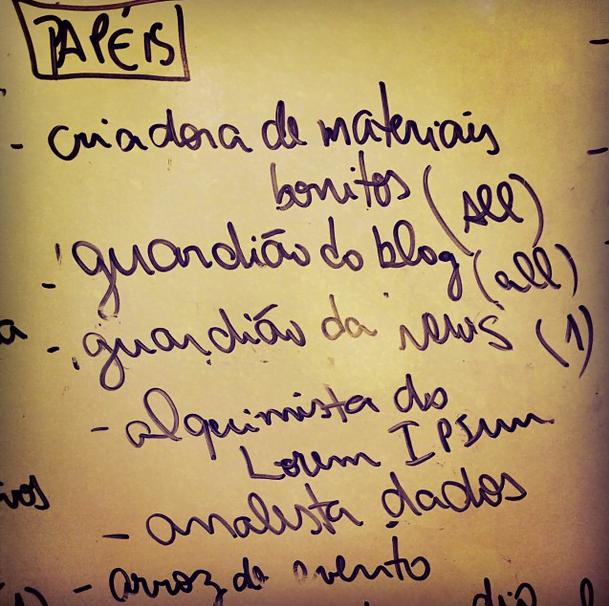 PAPÉIS
- criadora de materiais
bonitos (All)
- guardião do blog (all)
- guardião da news (1)
- alquimista do
Lorem Ipsum
- analista dados
- arroz de evento